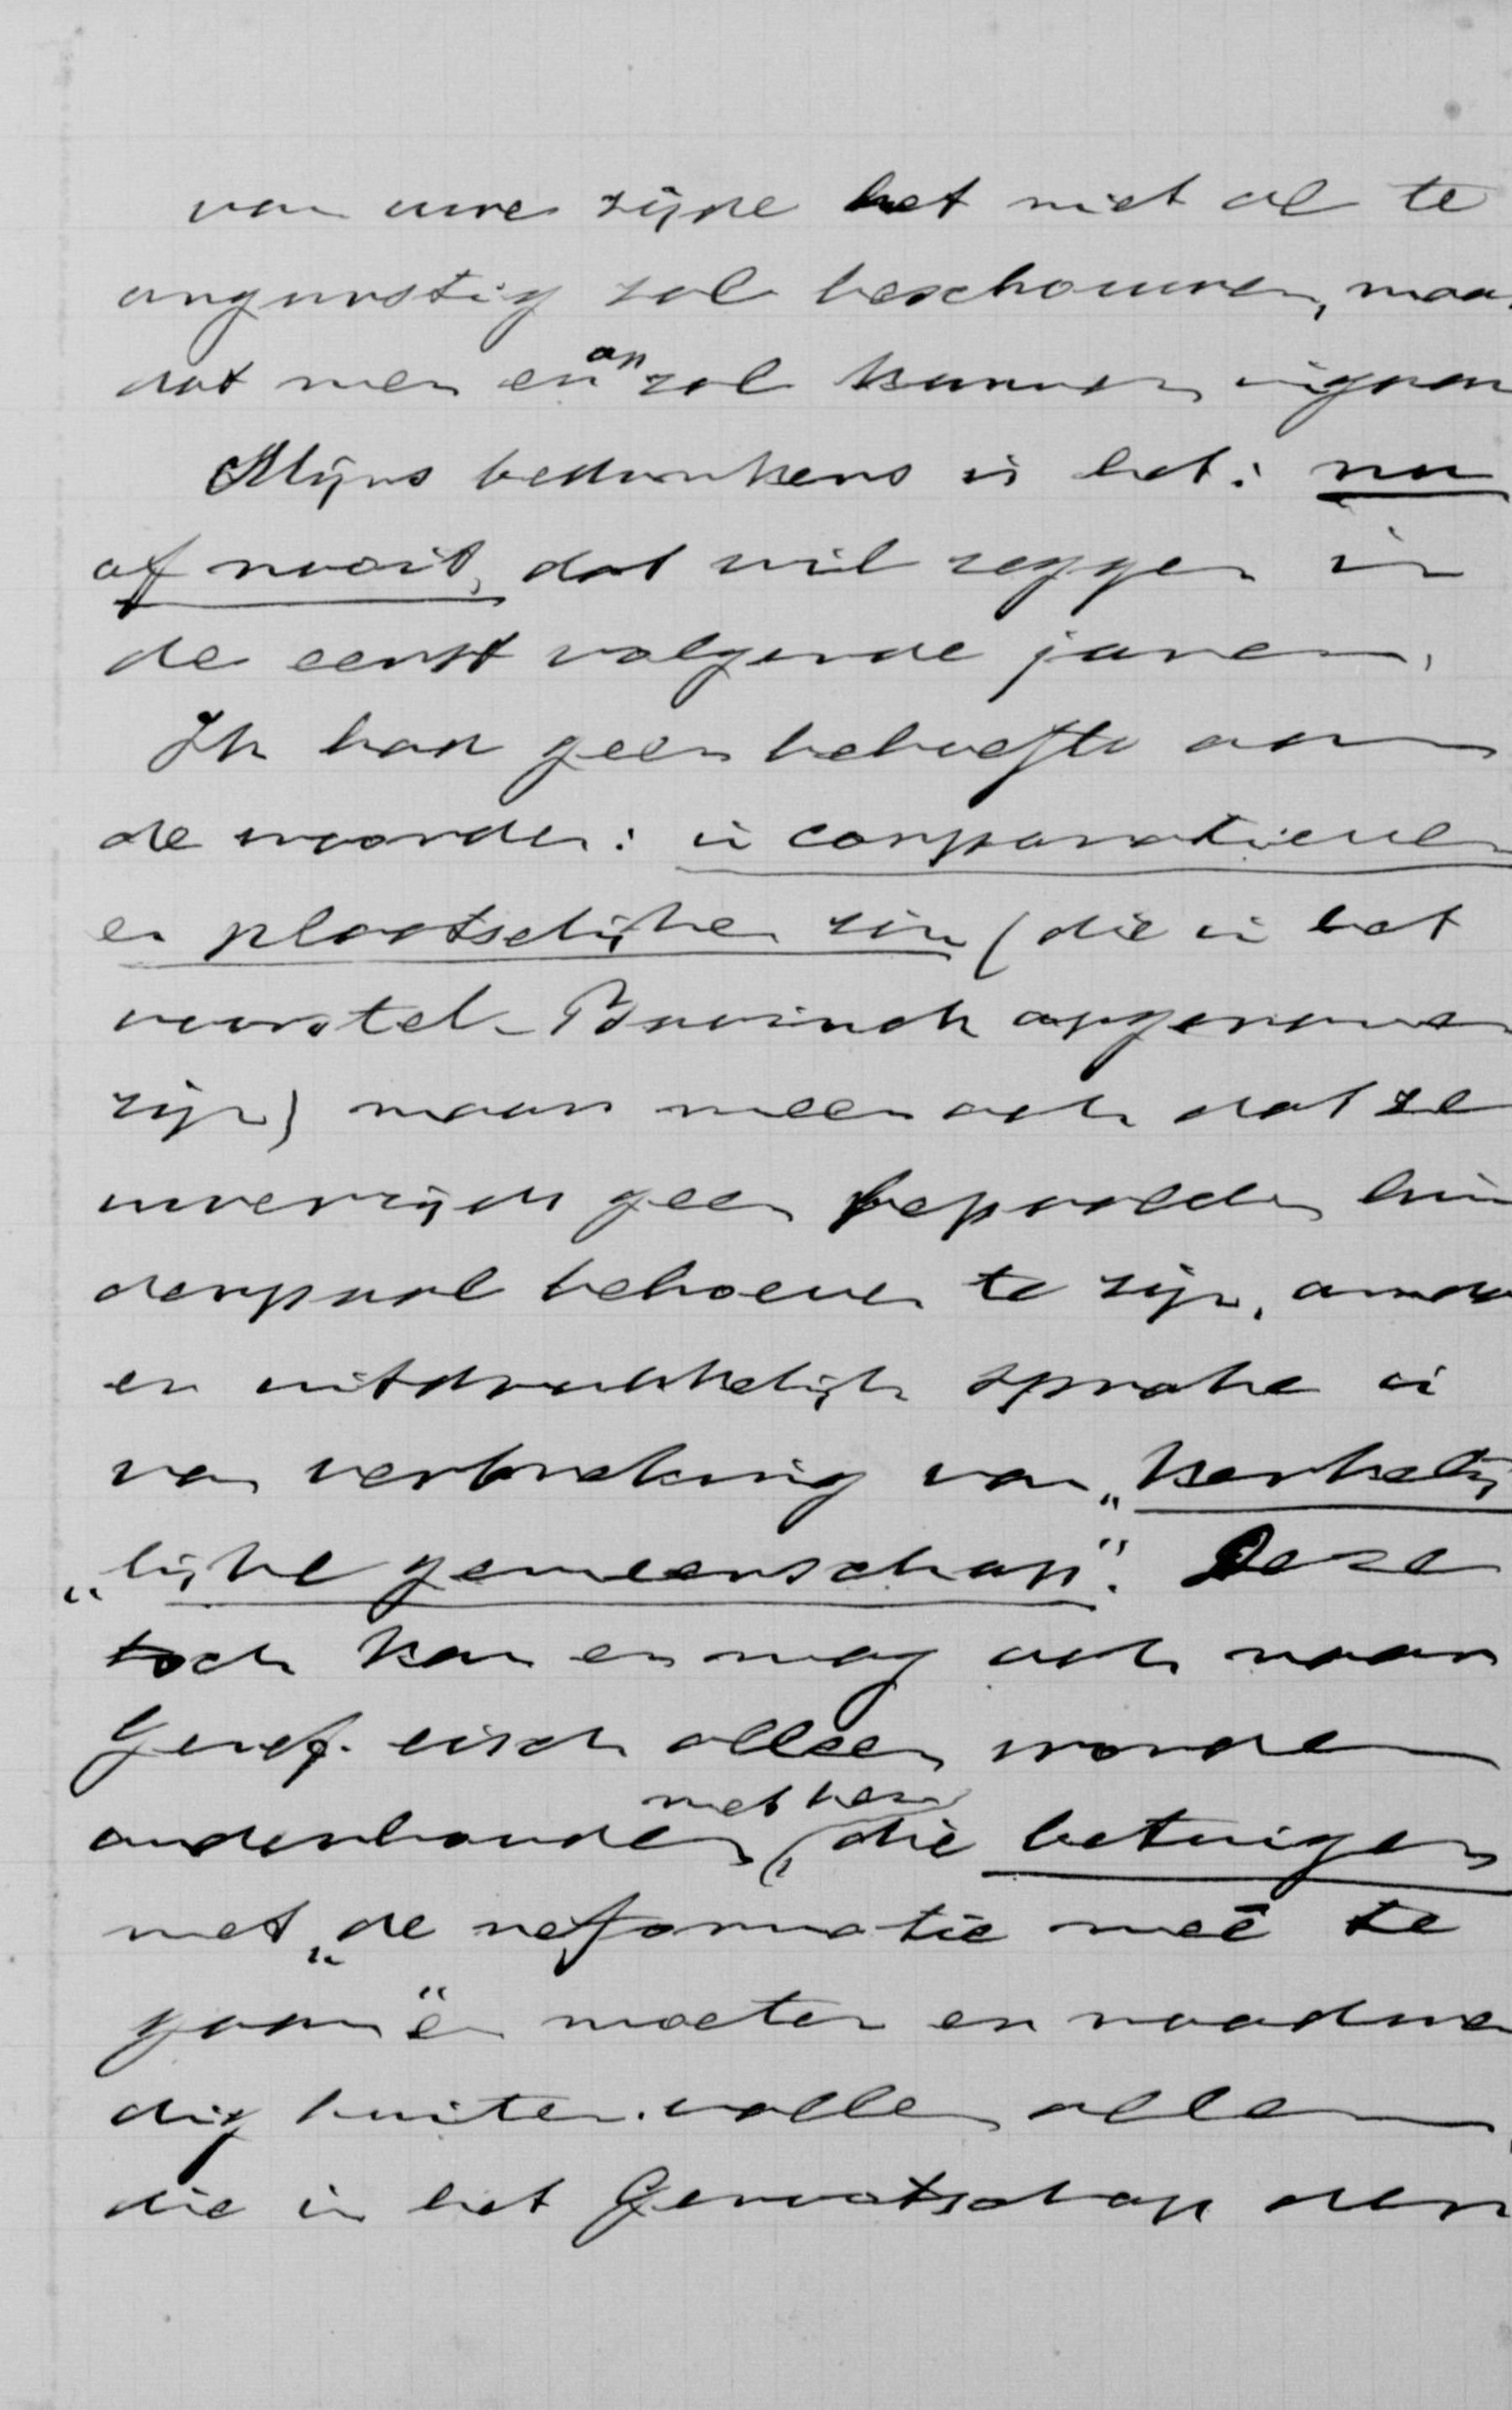 van uwe zijde het niet al te
ongunstig zal beschouwen, maar
dat men er op zal kunnen ingaan
Mijns bedunkens is het: nu
of nooit, dat wil zeggen in
de eerst volgende jaren.
Ik had geen behoefte aan
de woorden: in corporatieven
en plaatselijken zin (die in het
voorstel-Bavinck opgenomen
zijn) maar meen ook dat ze
uwerzijds geen bepaalde hin
derpaal behoeven te zijn, omdat
er uitdrukkelijk sprake is
van verbreking van „kerkelij
„lijke gemeenschap”. Deze
toch kan en mag ook naar
Geref. eisch alleen worden
onderhouden, met hen die betuigen
met „de reformatie meê te
gaan” en moeten er noodwen
dig buiten vallen allen,
die in het Genootschap den